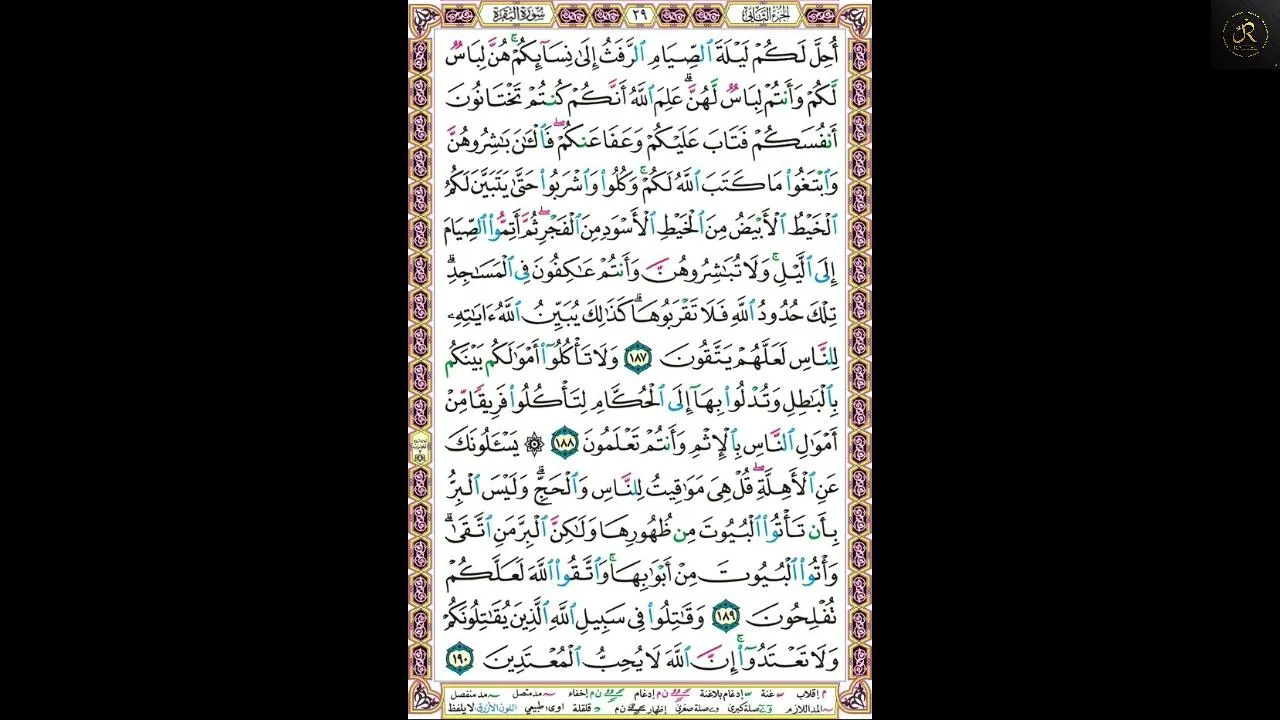 الجزء الثاني
٢٩
سورة البقرة
أُحِلَّ لَكُمْ لَيْلَةَ ٱلصِّيَامِ ٱلرَّفَثُ إِلَىٰ نِسَآئِكُمْ ۚ هُنَّ لِبَاسٌ
لَّكُمْ وَأَنتُمْ لِبَاسٌ لَّهُنَّ ۗ عَلِمَ ٱللَّهُ أَنَّكُمْ كُنتُمْ تَخْتَانُونَ
أَنفُسَكُمْ فَتَابَ عَلَيْكُمْ وَعَفَا عَنكُمْ ۖ فَٱلْـَٰٔنَ بَـٰشِرُوهُنَّ
وَٱبْتَغُوا۟ مَا كَتَبَ ٱللَّهُ لَكُمْ ۚ وَكُلُوا۟ وَٱشْرَبُوا۟ حَتَّىٰ يَتَبَيَّنَ لَكُمُ
ٱلْخَيْطُ ٱلْأَبْيَضُ مِنَ ٱلْخَيْطِ ٱلْأَسْوَدِ مِنَ ٱلْفَجْرِ ۖ ثُمَّ أَتِمُّوا۟ ٱلصِّيَامَ
إِلَى ٱلَّيْلِ ۚ وَلَا تُبَـٰشِرُوهُنَّ وَأَنتُمْ عَـٰكِفُونَ فِى ٱلْمَسَـٰجِدِ ۗ
تِلْكَ حُدُودُ ٱللَّهِ فَلَا تَقْرَبُوهَا ۗ كَذَٰلِكَ يُبَيِّنُ ٱللَّهُ ءَايَـٰتِهِۦ
لِلنَّاسِ لَعَلَّهُمْ يَتَّقُونَ ١٨٧ وَلَا تَأْكُلُوٓا۟ أَمْوَٰلَكُم بَيْنَكُم
بِٱلْبَـٰطِلِ وَتُدْلُوا۟ بِهَآ إِلَى ٱلْحُكَّامِ لِتَأْكُلُوا۟ فَرِيقًا مِّنْ
أَمْوَٰلِ ٱلنَّاسِ بِٱلْإِثْمِ وَأَنتُمْ تَعْلَمُونَ ١٨٨ ۞ يَسْـَٔلُونَكَ
عَنِ ٱلْأَهِلَّةِ ۖ قُلْ هِىَ مَوَٰقِيتُ لِلنَّاسِ وَٱلْحَجِّ ۗ وَلَيْسَ ٱلْبِرُّ
بِأَن تَأْتُوا۟ ٱلْبُيُوتَ مِن ظُهُورِهَا وَلَـٰكِنَّ ٱلْبِرَّ مَنِ ٱتَّقَىٰ ۗ
وَأْتُوا۟ ٱلْبُيُوتَ مِنْ أَبْوَٰبِهَا ۚ وَٱتَّقُوا۟ ٱللَّهَ لَعَلَّكُمْ
تُفْلِحُونَ ١٨٩ وَقَـٰتِلُوا۟ فِى سَبِيلِ ٱللَّهِ ٱلَّذِينَ يُقَـٰتِلُونَكُمْ
وَلَا تَعْتَدُوٓا۟ ۚ إِنَّ ٱللَّهَ لَا يُحِبُّ ٱلْمُعْتَدِينَ ١٩٠
م إقلاب غنة إدغام بلاغنة ن م إدغام ن م إخفاء مد متصل مد منفصل
المد اللازم صلة كبرى صلة صغرى إظهار ن م قلقلة اوى، طبيعي اللون الأزرق لا يلفظ